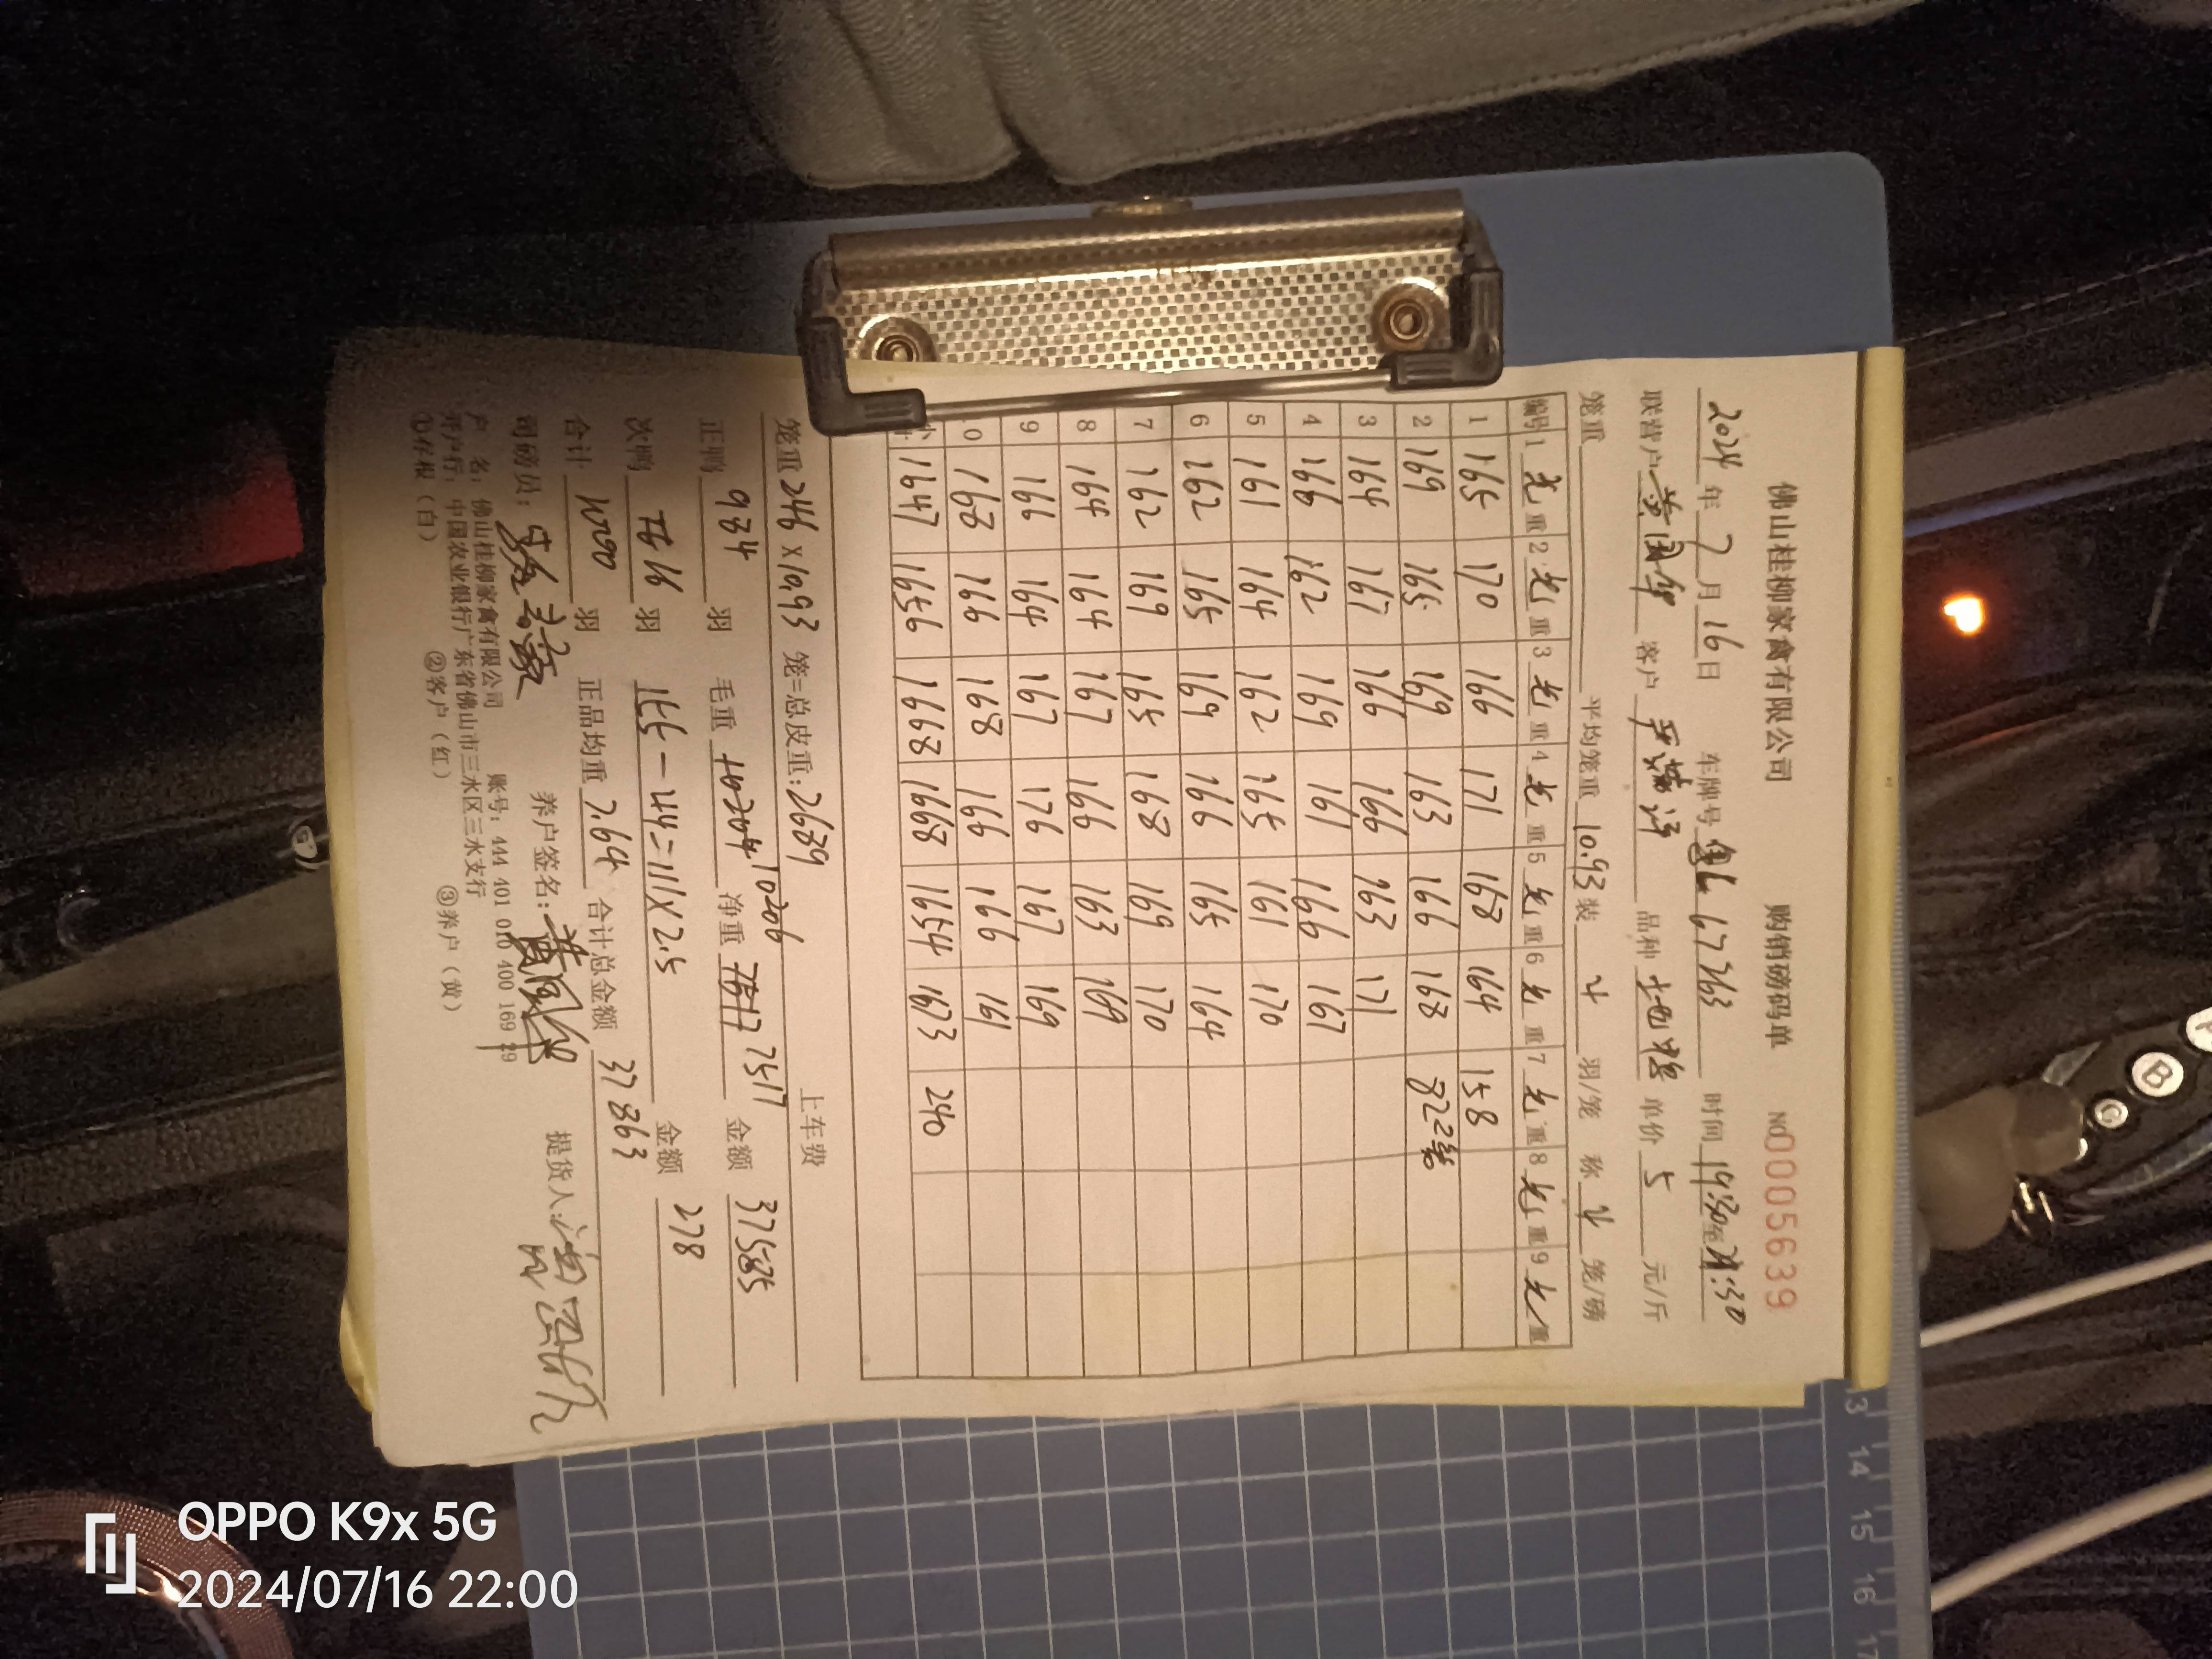 佛山桂柳家禽有限公司 购销磅码单 NO0005639
2024年7月16日 车牌号 67363 时间19:30至21:30
联营户 黄国华 客户 品种 单价 5 元/斤
笼重 平均笼重 10.93 装 4 羽/笼 称 4 笼/磅
编号 1 毛重 2 毛重 3 毛重 4 毛重 5 毛重 6 毛重 7 毛重 8 毛重 9 毛重
1 165 170 166 171 168 164 158
2 169 165 169 163 166 168 822笼
3 164 167 166 166 163 171
4 166 162 169 161 166 167
5 161 164 162 165 161 170
6 162 165 169 166 165 164
7 162 169 165 168 169 170
8 164 164 167 166 163 169
9 166 164 167 176 167 169
10 168 166 168 166 166 161
小计 1647 1656 1668 1668 1654 1673 240
笼重 246 X 10.93 笼=总皮重:2689 上车费
正鸭 984 羽 毛重 10206 净重 7517 金额 37585
次鸭 16 羽 155-44=111X2.5 金额 278
合计 1000 羽 正品均重 7.64 合计总金额 37863
司磅员: 养户签名: 黄国华 提货人:
户 名: 佛山桂柳家禽有限公司 账号: 444 401 010 400 169 29
开户行: 中国农业银行广东省佛山市三水区三水支行
①存根(白) ②客户(红) ③养户(黄)
13 14 15 16 17
B
OPPO K9x 5G
2024/07/16 22:00